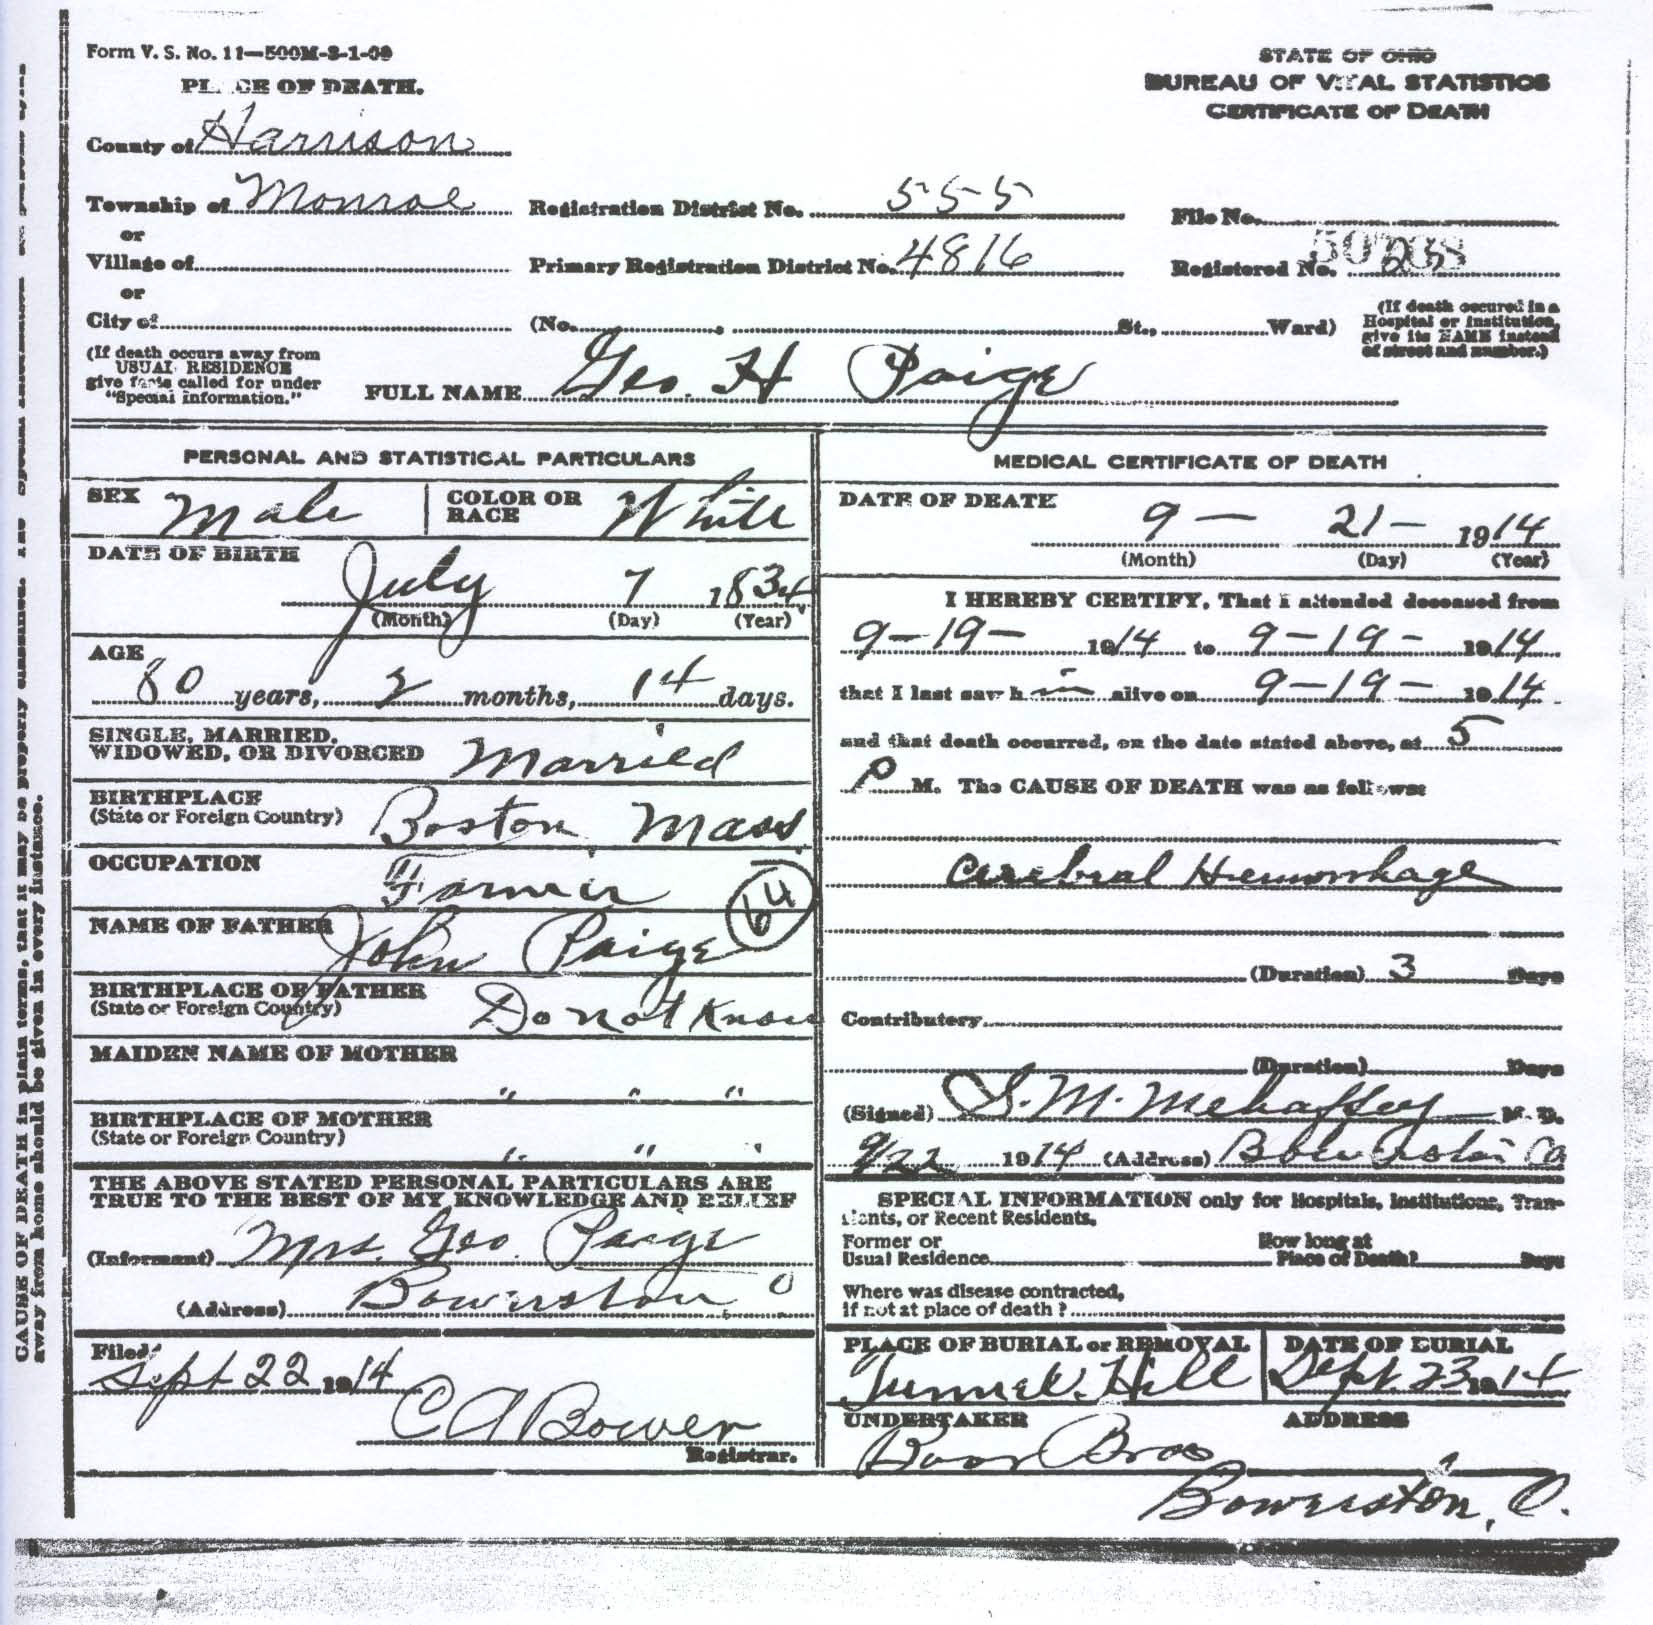 Form V. S. No. 11—500M-3-1-09
STATE OF OHIO
BUREAU OF VITAL STATISTICS
CERTIFICATE OF DEATH
PLACE OF DEATH.
County of Harrison
Township of Monroe
Registration District No. 555
File No.
or
Village of
Primary Registration District No. 4816
Registered No.
or
City of
(No. , St., Ward)
(If death occured in a
Hospital or Institution,
give its NAME instead
of street and number.)
(If death occurs away from
USUAL RESIDENCE
give facts called for under
"Special information."
FULL NAME Geo. H Paige
PERSONAL AND STATISTICAL PARTICULARS
SEX Male
COLOR OR
RACE White
DATE OF BIRTH
July 7 1834
(Month) (Day) (Year)
AGE
80 years, 2 months, 14 days.
SINGLE, MARRIED,
WIDOWED, OR DIVORCED Married
BIRTHPLACE
(State or Foreign Country) Boston Mass.
OCCUPATION Farmer
64
NAME OF FATHER John Paige
BIRTHPLACE OF FATHER
(State or Foreign Country) Do not Know
MAIDEN NAME OF MOTHER
" " "
BIRTHPLACE OF MOTHER
(State or Foreign Country)
" " "
THE ABOVE STATED PERSONAL PARTICULARS ARE
TRUE TO THE BEST OF MY KNOWLEDGE AND BELIEF
(Informant) Mrs. Geo. Paige
(Address) Bowerston, O
Filed
Sept 22 1914
C A Bower
Registrar.
MEDICAL CERTIFICATE OF DEATH
DATE OF DEATH
9 — 21 — 1914
(Month) (Day) (Year)
I HEREBY CERTIFY, That I attended deceased from
9-19- 1914 to 9-19- 1914
that I last saw h im alive on 9-19- 1914
and that death occurred, on the date stated above, at 5
P M. The CAUSE OF DEATH was as follows:
Cerebral Hemorrhage
(Duration) 3 Days
Contributory
(Duration) Days
(Signed) S. M. Mehaffey M. D.
9/22 1914 (Address) Bowerston
SPECIAL INFORMATION only for Hospitals, Institutions, Tran-
sients, or Recent Residents.
Former or
Usual Residence
How long at
Place of Death? Days
Where was disease contracted,
if not at place of death?
PLACE OF BURIAL or REMOVAL
Tunnel Hill
DATE OF BURIAL
Sept. 23 1914
UNDERTAKER
ADDRESS
Bros
Bowerston, O.
CAUSE OF DEATH in plain terms, that it may be properly classified. The
away from home should be given in every instance.